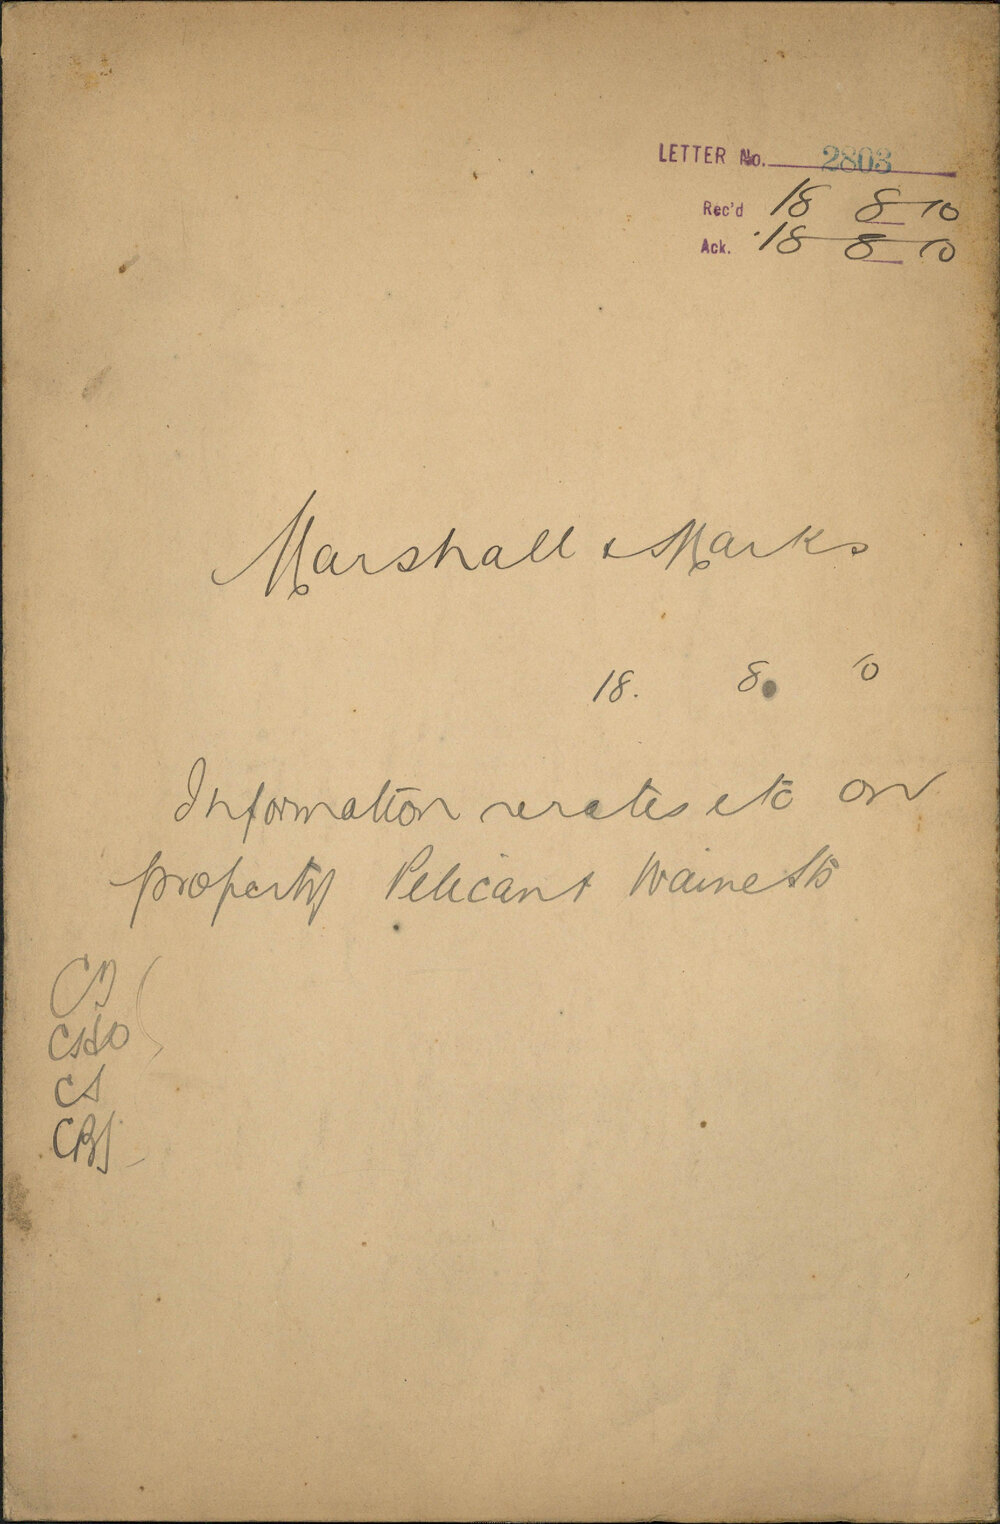 LETTER No. 2803
Rec'd 18 8 10
Ack. 18 8 10
Marshall & Marks
18. 8. 10
Information re rates etc on
property Pelican & Waine Sts
CS